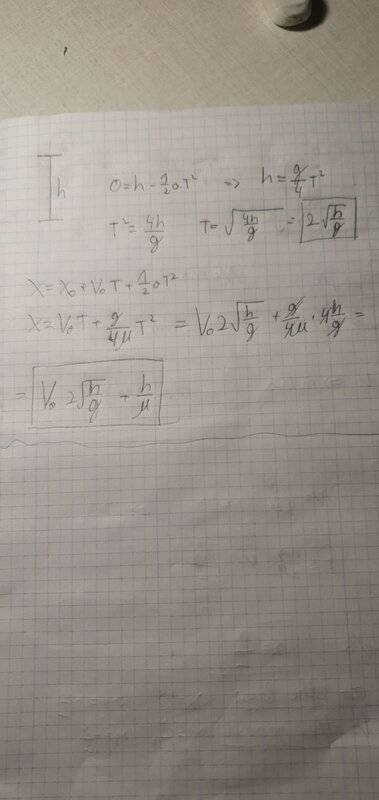 h 0=h-½aT² => h=g/4 T²
T²=4h/g T=√(4h/g)=2√(h/g)
x=x₀+V₀T+½aT²
x=V₀T+g/4μ T² = V₀2√(h/g)+g/4μ·4h/g=
=V₀ 2√(h/g)+h/μ